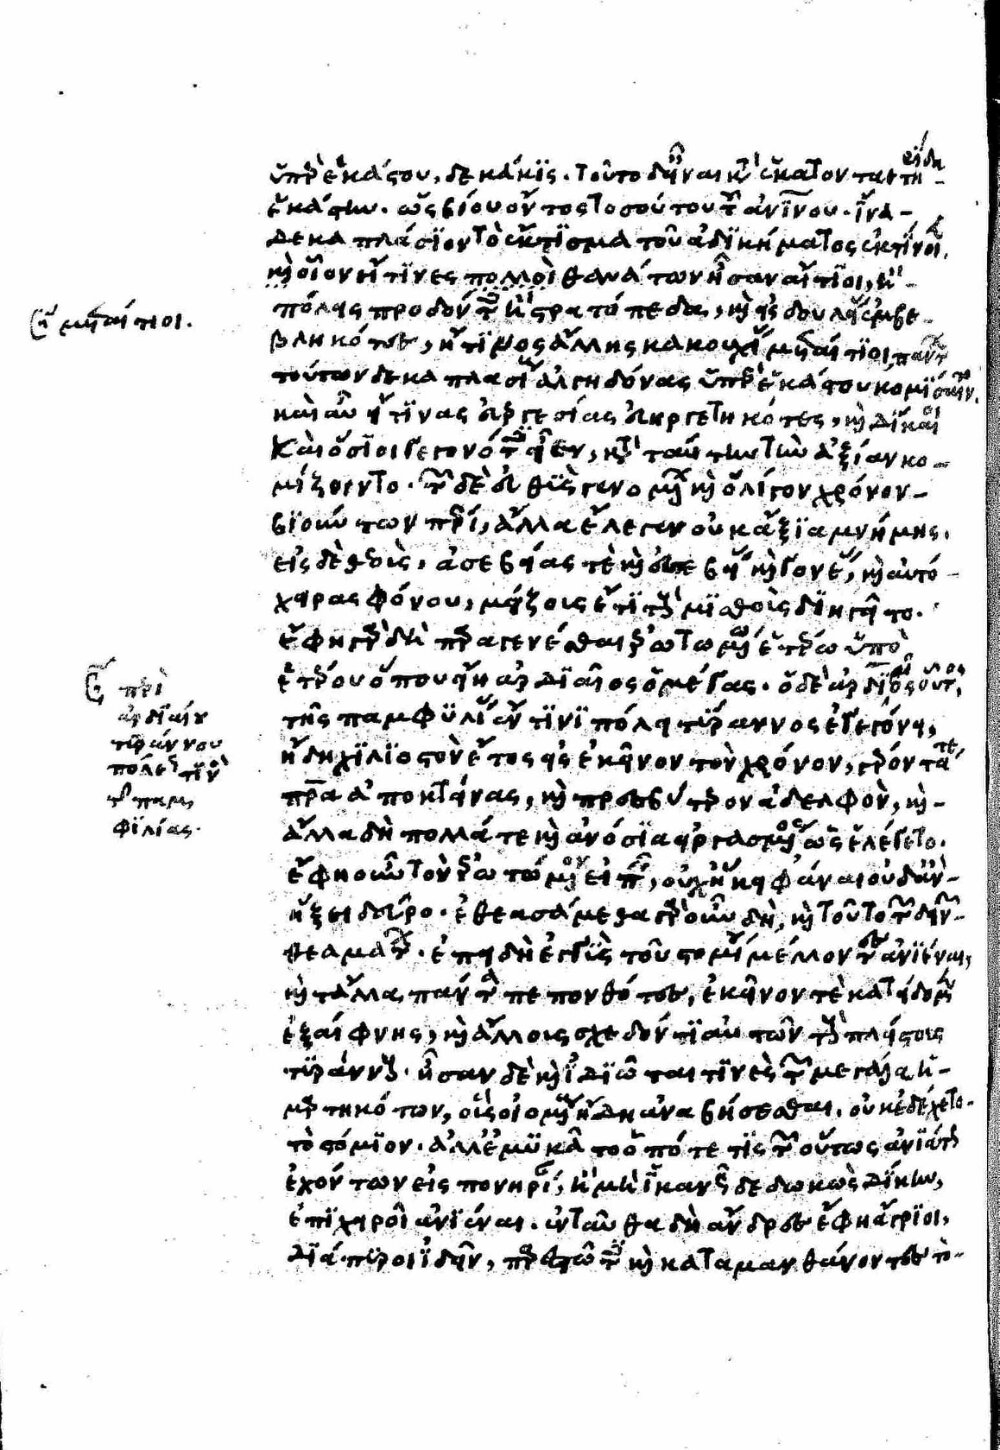 ὑπὲρ ἑκάστου, δεκάκις. τοῦτο δ' εἶναι κατὰ ἑκατονταετηρίδα
ἑκάστην. ὡς βίου ὄντος τοσούτου τοῦ ἀνίνου. ἵνα
δεκαπλάσιον τὸ ἔκτισμα τοῦ ἀδικήματος ἐκτίνοιεν.
καὶ οἷον εἴ τινες πολλοὶ θανάτων ἦσαν αἴτιοι, ἢ
πόλεις προδόντες ἢ στρατόπεδα, καὶ εἰς δουλείας ἐμβε-
βληκότες, ἤ τινος ἄλλης κακουχίας μεταίτιοι, πάντων
τούτων δεκαπλασίας ἀλγηδόνας ὑπὲρ ἑκάστου κομίσαιντο.
καὶ αὖ εἴ τινας εὐεργεσίας εὐεργετηκότες, καὶ δίκαιοι
καὶ ὅσιοι γεγονότες εἶεν, κατὰ ταῦτα τὴν ἀξίαν κο-
μίζοιντο. τῶν δὲ εὐθὺς γενομένων καὶ ὀλίγον χρόνον
βιούντων πέρι, ἄλλα ἔλεγεν οὐκ ἄξια μνήμης.
εἰς δὲ θεοὺς, ἀσεβείας τὲ καὶ εὐσεβείας καὶ γονέας, καὶ αὐτό-
χειρας φόνου, μείζους ἔτι τοὺς μισθοὺς διηγεῖτο.
ἔφη γὰρ δὴ παραγενέσθαι ἐρωτωμένῳ ἑτέρῳ ὑπὸ
ἑτέρου ὅπου εἴη ἀρδιαῖος ὁ μέγας. ὁ δὲ ἀρδιαῖος οὗτος
τῆς παμφυλίας ἔν τινι πόλει τύραννος ἐγεγόνει,
ἤδη χιλιοστὸν ἔτος εἰς ἐκεῖνον τὸν χρόνον, γέροντά τε
πρα ἀποκτείνας, καὶ πρεσβύτερον ἀδελφὸν, καὶ
ἄλλα δὴ πολλά τε καὶ ἀνόσια εἰργασμένος ὡς ἐλέγετο.
ἔφη οὖν τὸν ἐρωτώμενον εἰπεῖν, οὐχ ἥκει φάναι οὐδ' ἂν
ἥξει δεῦρο. ἐθεασάμεθα γὰρ οὖν δὴ, καὶ τοῦτο τῶν δεινῶν
θεαμάτων. ἐπειδὴ ἐγγὺς τοῦ στομίου μέλλοντες ἀνιέναι,
καὶ τἄλλα πάντα πεπονθότες, ἐκεῖνόν τὲ κατείδομεν
ἐξαίφνης, καὶ ἄλλους σχεδόν τι αὐτῶν τοὺς πλείστους
τυράννους. ἦσαν δὲ καὶ ἰδιῶται τινὲς τῶν μεγάλα ἡ-
μαρτηκότων, οὓς οἰομένους ἤδη ἀναβήσεσθαι, οὐκ ἐδέχετο
τὸ στόμιον. ἀλλ' ἐμυκᾶτο ὁπότε τις τῶν οὕτως ἀνιάτως
ἐχόντων εἰς πονηρίαν, ἢ μὴ ἱκανῶς δεδωκὼς δίκην,
ἐπιχειροῖ ἀνιέναι. ἐνταῦθα δὴ ἄνδρες ἔφη ἄγριοι,
διάπυροι ἰδεῖν, παρεστῶτες καὶ καταμανθάνοντες τὸ
ση μεταίτιοι.
ση περὶ
ἀρδιαίου
τυράννου
πόλεως τινὸς
τῆς παμ
φιλίας.